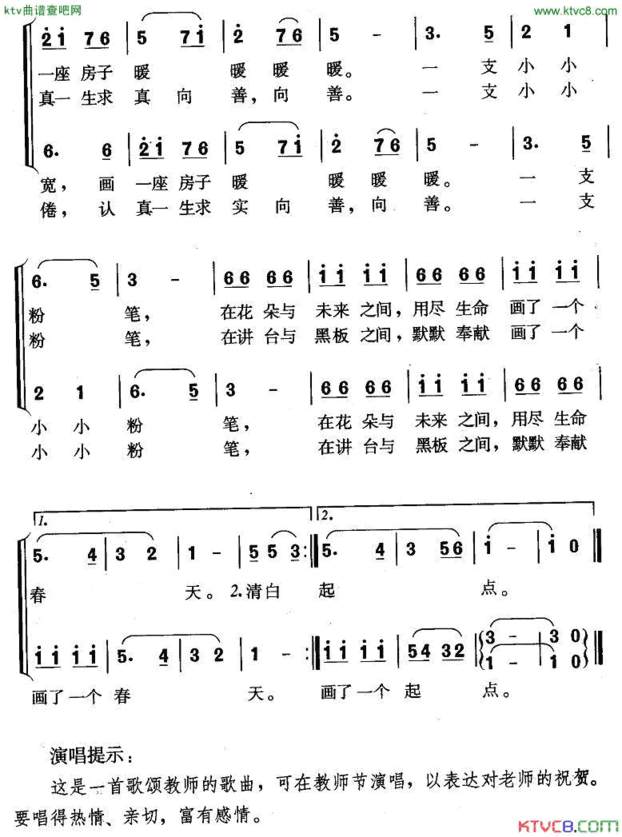 ktv曲谱查吧网 www.ktvc8.com
2 1 7 6 | 5 7 1 | 2 7 6 | 5 - | 3. 5 | 2 1 |
一座 房子 暖 暖 暖 暖。 一 支 小 小
真一 生求 真 向 善,向 善。 一 支 小 小
6. 6 | 2 1 7 6 | 5 7 1 | 2 7 6 | 5 - | 3. 5 |
宽, 画 一座 房子 暖 暖 暖 暖。 一 支
倦, 认 真一 生求 实 向 善,向 善。 一 支
6. 5 | 3 - | 66 66 | 11 11 | 66 66 | 11 11 |
粉 笔, 在花 朵与 未来 之间,用尽 生命 画了 一个
粉 笔, 在讲 台与 黑板 之间,默默 奉献 画了 一个
2 1 | 6. 5 | 3 - | 66 66 | 11 11 | 66 66 |
小 小 粉 笔, 在花 朵与 未来 之间,用尽 生命
小 小 粉 笔, 在讲 台与 黑板 之间,默默 奉献
1. 2.
5. 4 | 3 2 | 1 - | 5 5 3 :| 5. 4 | 3 56 | 1 - | 1 0 ||
春 天。 2.清白 起 点。
11 11 | 5. 4 | 3 2 | 1 - :| 11 11 | 54 32 | 3 - | 3 0 ||
1 - | 1 0
画了 一个 春 天。 画了 一个 起 点。
演唱提示:
这是一首歌颂教师的歌曲,可在教师节演唱,以表达对老师的祝贺。
要唱得热情、亲切,富有感情。
KTVC8.COM